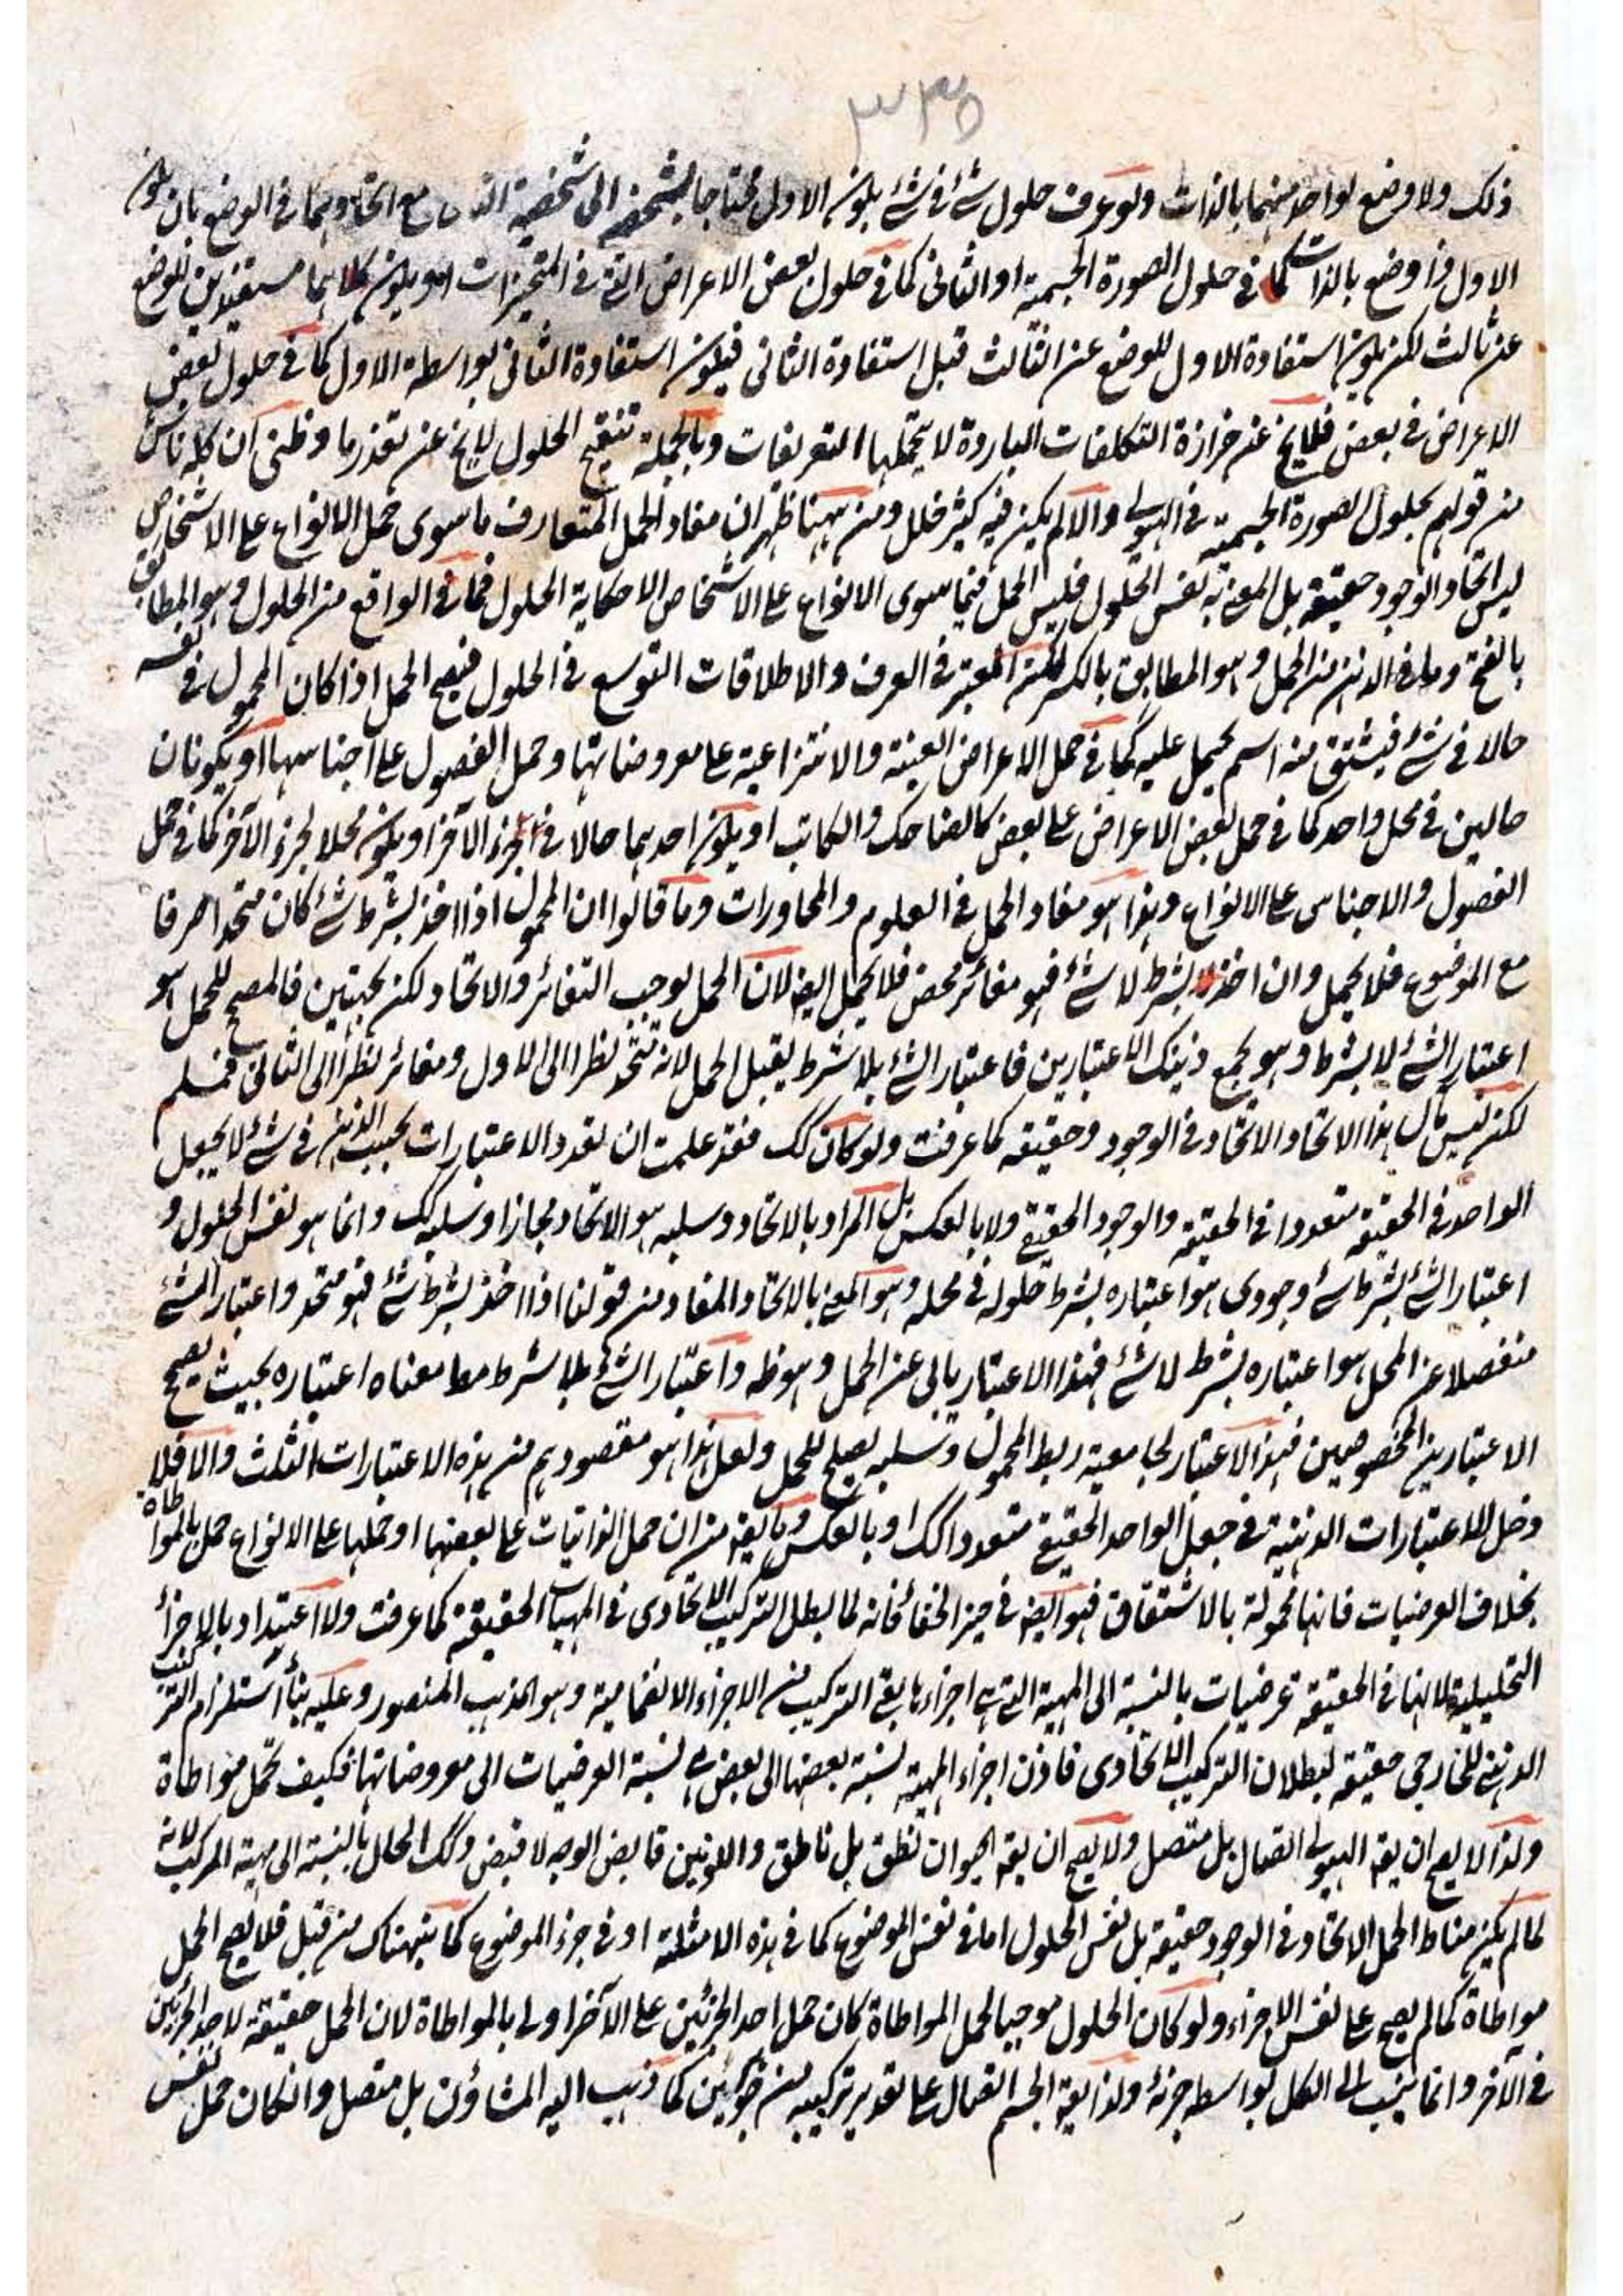 ٣٣٥
ذلك ولا وضع لواحد منهما بالذات ولو عرف حلول شئ فى شئ بكون الاول محتاجا بتشخصه الى شخصية مع اتحادهما فى الوضع بان يكون
الاول ذا وضع بالذات كما فى حلول الصورة الجسمية او الثانى كما فى حلول بعض الاعراض التى فى المتحيزات او يكون كلاهما مستفيدين للوضع
عن ثالث لكن يكون استفادة الاول للوضع عن الثالث قبل استفادة الثانى فيكون استفادة الثانى بواسطة الاول كما فى حلول بعض
الاعراض فى بعض فلا يخ عن حزازة التكلفات الباردة لا يتحملها التعريفات وبالجملة تنقيح الحلول لا يخ عن تعذر ما وظنى ان كله ناش
من قولهم بحلول الصورة الجسمية فى الهيولى والا لم يكن فيه كثير خلل ومن ههنا ظهر ان مفاد الحمل المتعارف ما سوى حمل الانواع على الاشخاص
ليس اتحاد الوجود حقيقة بل المعنى به نفس الحلول فليس الحمل فيما سوى الانواع على الاشخاص الا حكاية الحلول فما فى الواقع من الحلول وهو المطابق
بالفتح وما فى الذهن من الحمل وهو المطابق بالكسر لكن المعتبر فى العرف والاطلاقات التوسع فى الحلول فيصح الحمل اذا كان المحمول فى نفسه
حالا فى شئ فيشتق منه اسم يحمل عليه كما فى حمل الاعراض العينية والانتزاعية على معروضاتها وحمل الفصول على اجناسها او يكونان
حالين فى محل واحد كما فى حمل بعض الاعراض على بعض كالضاحك والكاتب او يكون احدهما حالا فى الجزء الآخر او يكون محلا لجزء الآخر كما فى حمل
الفصول والاجناس على الانواع وهذا هو مفاد الحمل فى العلوم والمحاورات وما قالوا ان المحمول اذا اخذ بشرط شئ كان متحدا صرفا
مع الموضوع فلا يحمل وان اخذ بشرط لا شئ فهو مغائر محض فلا يحمل ايضا لان الحمل يوجب التغائر والاتحاد لكن بجهتين فالمصحح للحمل هو
اعتبار الشئ لا بشرط وهو يجمع ذينك الاعتبارين فاعتبار الشئ بلا شرط يقبل الحمل لانه متحد نظرا الى الاول ومغائر نظرا الى الثانى فمسلم
لكن ليس هذا الاتحاد الاتحاد فى الوجود وحقيقة كما عرفت ولو كان كك فقد علمت ان تعدد الاعتبارات بحسب الذهن فى شئ لا يجعل
الواحد فى الحقيقة متعددا فى الحقيقة والوجود الحقيقى ولا بالعكس بل المراد بالاتحاد وسلبه هو الاتحاد مجازا وسلبه كك وانما هو نفس الحلول و
اعتبار الشئ بشرط شئ وجودى هو اعتباره بشرط حلوله فى محله وهو المعنى بالاتحاد المفاد من قولنا اذا اخذ بشرط شئ فهو متحد واعتبار الشئ
منفصلا عن المحل هو اعتباره بشرط لا شئ فهذا الاعتبار يابى عن الحمل وهو ظ واعتبار الشئ بلا شرط معناه اعتباره بحيث يصح
الاعتبارين المخصوصين فهذا الاعتبار لجامعيته ربط المحمول وسلبه يصلح للحمل ولعل هذا هو مقصودهم من هذه الاعتبارات الثلث والا فلا
دخل للاعتبارات الذهنية فى جعل الواحد الحقيقى متعددا كك او بالعكس وما يق من ان حمل الذاتيات على بعضها او حملها على الانواع حمل بالمواطاة
بخلاف العرضيات فانها محمولة بالاشتقاق فهو ايضا فى حيز الخفاء فانه لما بطل التركيب الاتحادى فى المهيات الحقيقة كما عرفت ولا اعتداد بالاجزاء
التحليلية لانها فى الحقيقة عرضيات بالنسبة الى المهية التى هى اجزاءها بقى التركيب من الاجزاء الانضمامية وهو المذهب المنصور وعليه بناء استلزام التركيب
الذهنى للخارجى حقيقة لبطلان التركيب الاتحادى فاذن اجزاء المهية نسبة بعضها الى بعض هى نسبة العرضيات الى معروضاتها فكيف تحمل مواطاة
ولذا لا يصح ان يق الهيولى اتصال بل متصل ولا يصح ان يق الحيوان نطق بل ناطق واللونين قابض الوجه لا قبض وكك الحال بالنسبة الى مهية المركب لانه
لما لم يكن مناط الحمل الاتحاد فى الوجود حقيقة بل نفس الحلول اما فى نفس الموضوع كما فى هذه الامثلة او فى جزء الموضوع كما نبهناك من قبل فلا يصح الحمل
مواطاة كما لم يصح على نفس الاجزاء ولو كان الحلول موجبا لحمل المواطاة كان حمل احد الجزئين على الآخر اولى بالمواطاة لان الحمل حقيقة لاحد الجزئين
فى الآخر وانما ينسب الى الكل بواسطة جزئه ولذا يق الجسم اتصال على تقدير تركيبه من جزئين كما ذهب اليه المشاؤن بل متصل والا لكان حمل نفس